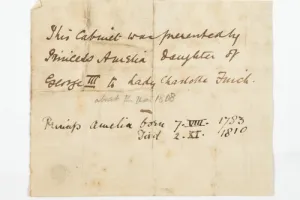 This Cabinet was presented by
Princess Amelia Daughter of
George III to Lady Charlotte Finch.
about the year 1808
Princess Amelia born 7. VIII. 1783
Died 2. XI. 1810